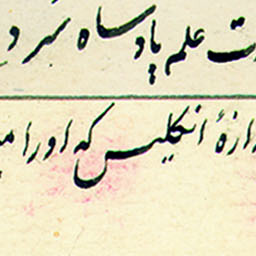 علم پادساه سرد
دازهٔ انکلیس که اورا